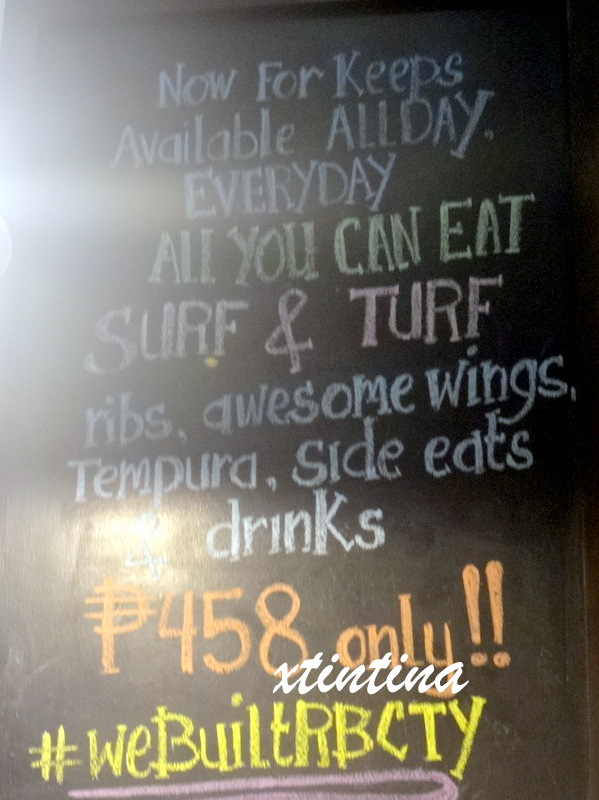 Now For Keeps
Available ALLDAY,
EVERYDAY
ALL YOU CAN EAT
SURF & TURF
ribs, awesome wings,
Tempura, side eats
& drinks
₱458 only!!
xtintina
#weBuiltRBCTY